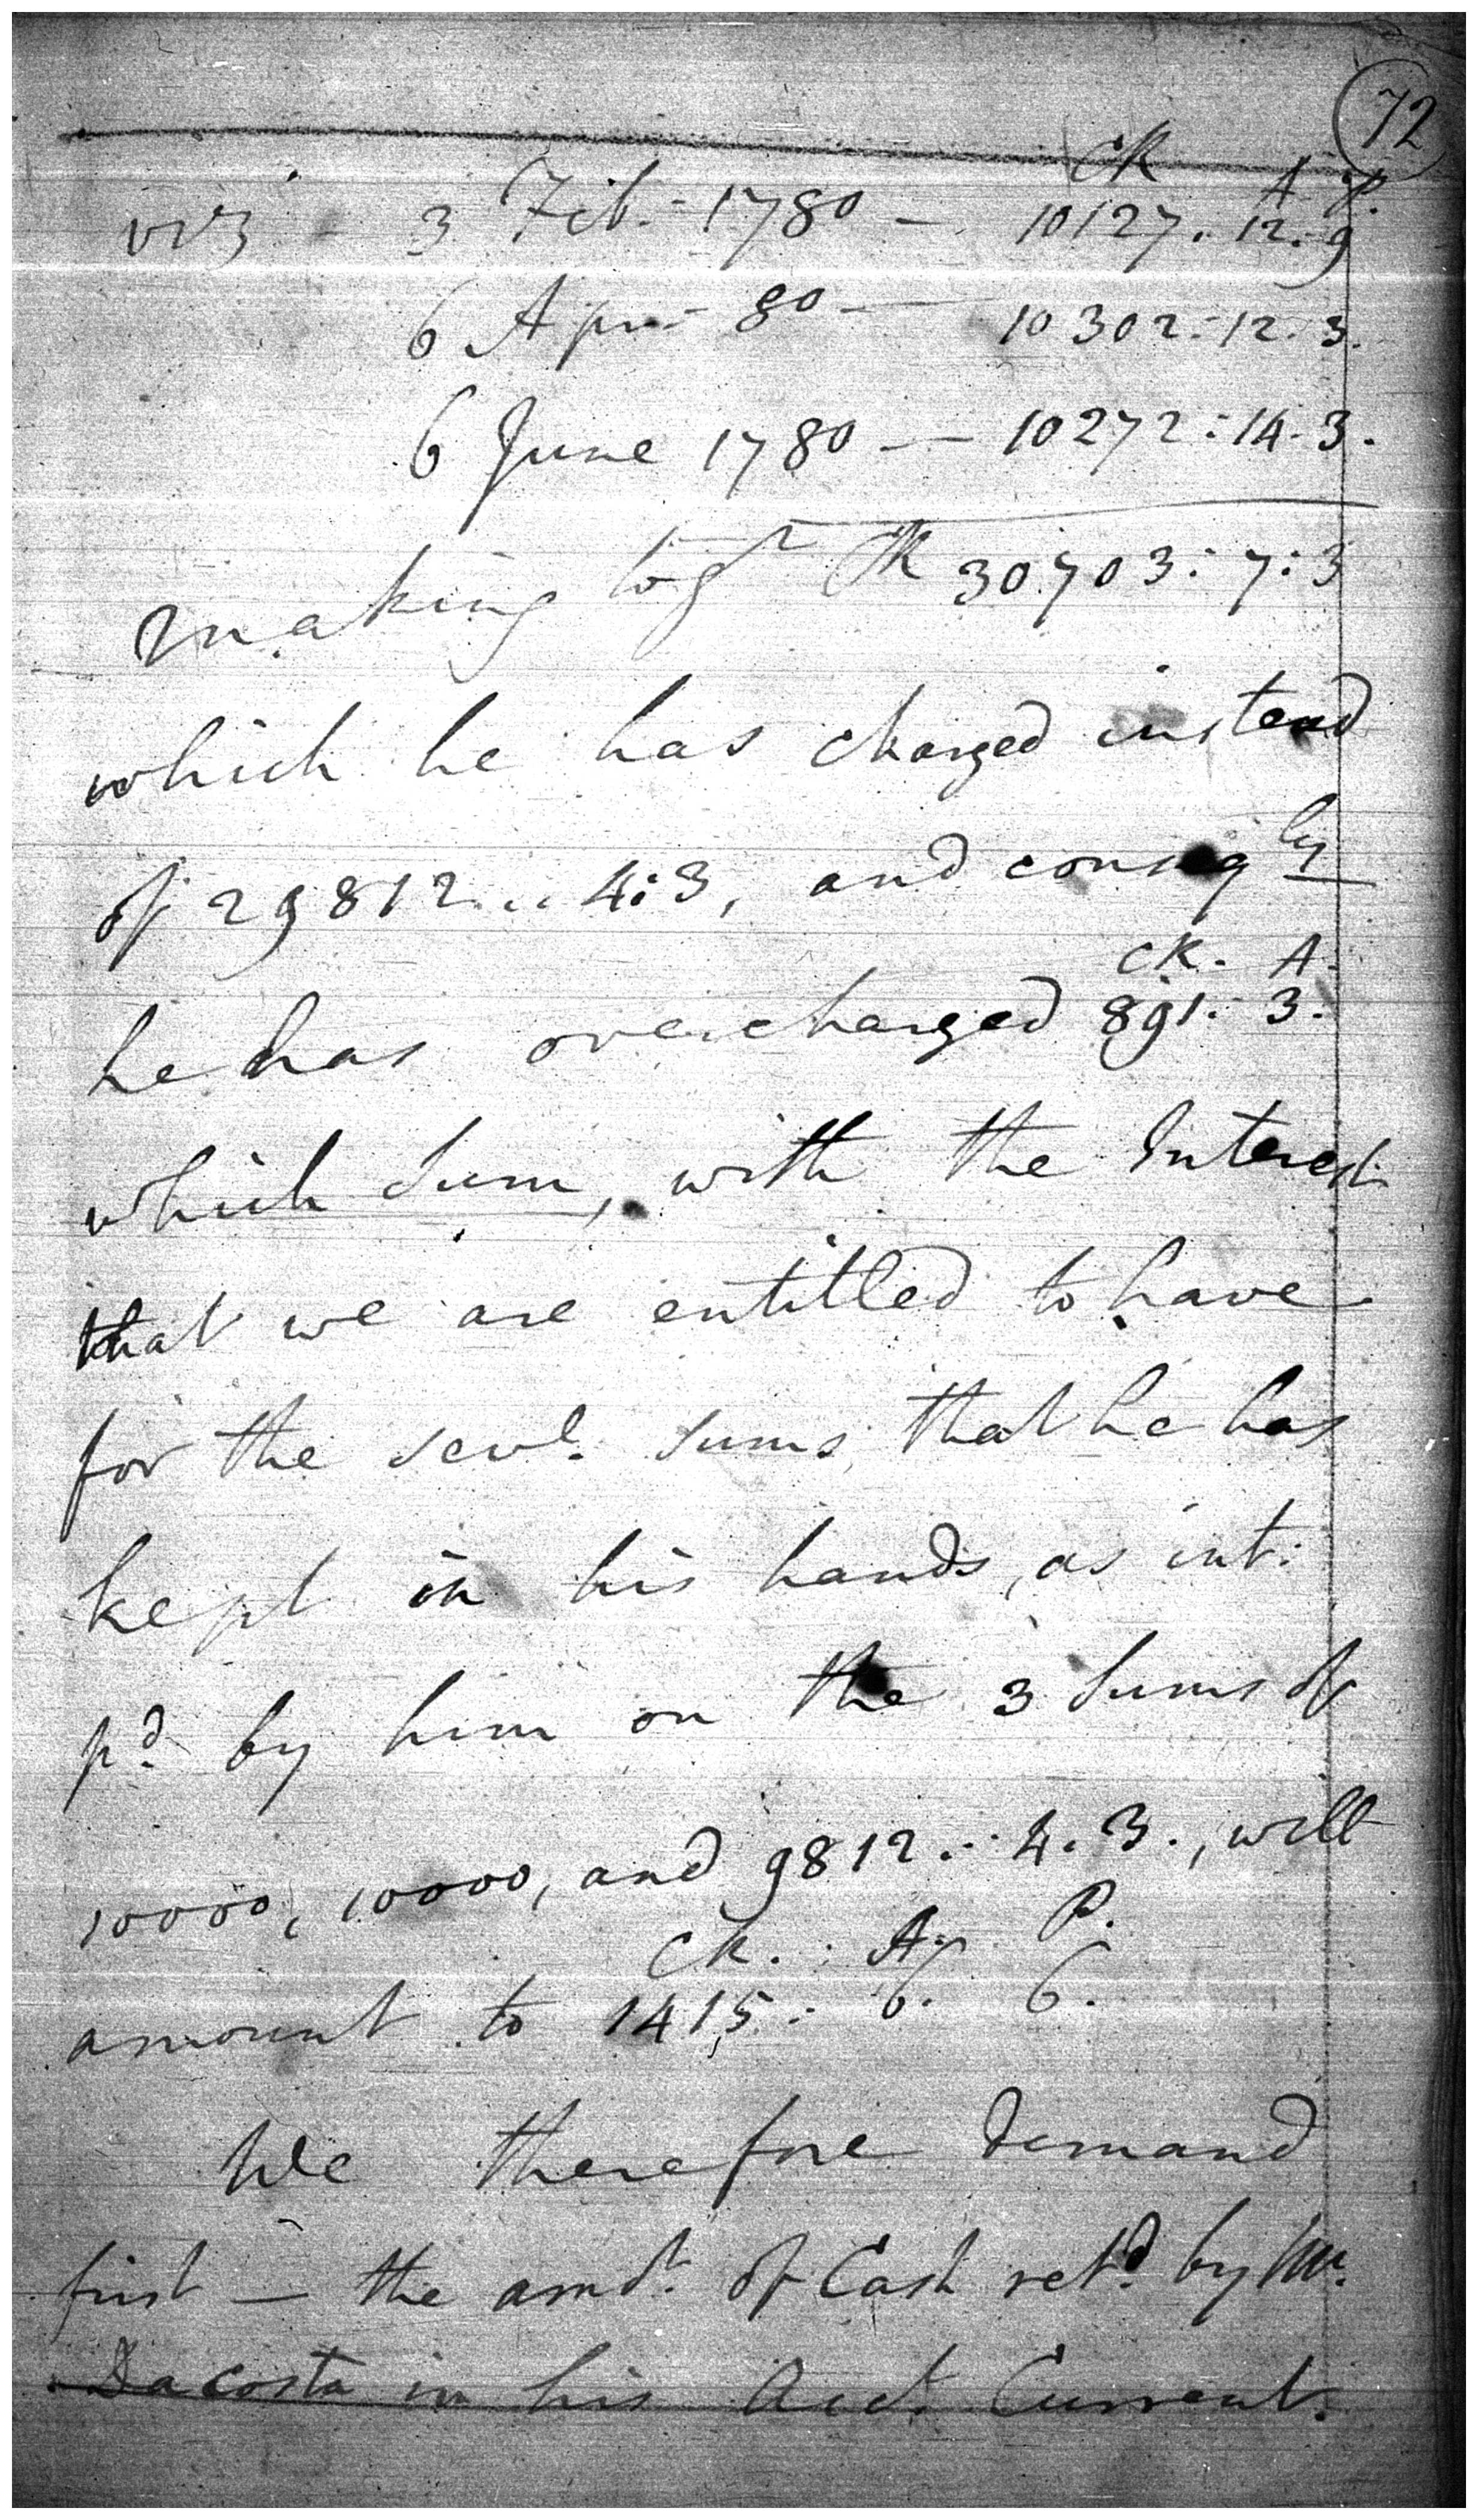 72
CR A P.
viz - 3 Feb. - 1780 - 10127. 12. 9
6 Apr. - 80 - 10302 : 12. 3.
6 June 1780 - 10272 : 14. 3.
making togr CR 30703 : 7 : 3
which he has charged instead
of 29812 .. 4 : 3, and conseqly
CR. A.
he has overcharged 891. 3.
which Sum, with the Interest
that we are entitled to have
for the sevl. Sums that he has
kept in his hands, as int:
pd. by him on the 3 Sums of
10000, 10000, and 9812 .. 4. 3., will
CR. A. P.
amount to 1415. 6. 6.
We therefore demand
first - the amot. of Cash retd. by Mr.
Dacosta in his Acct. Current.